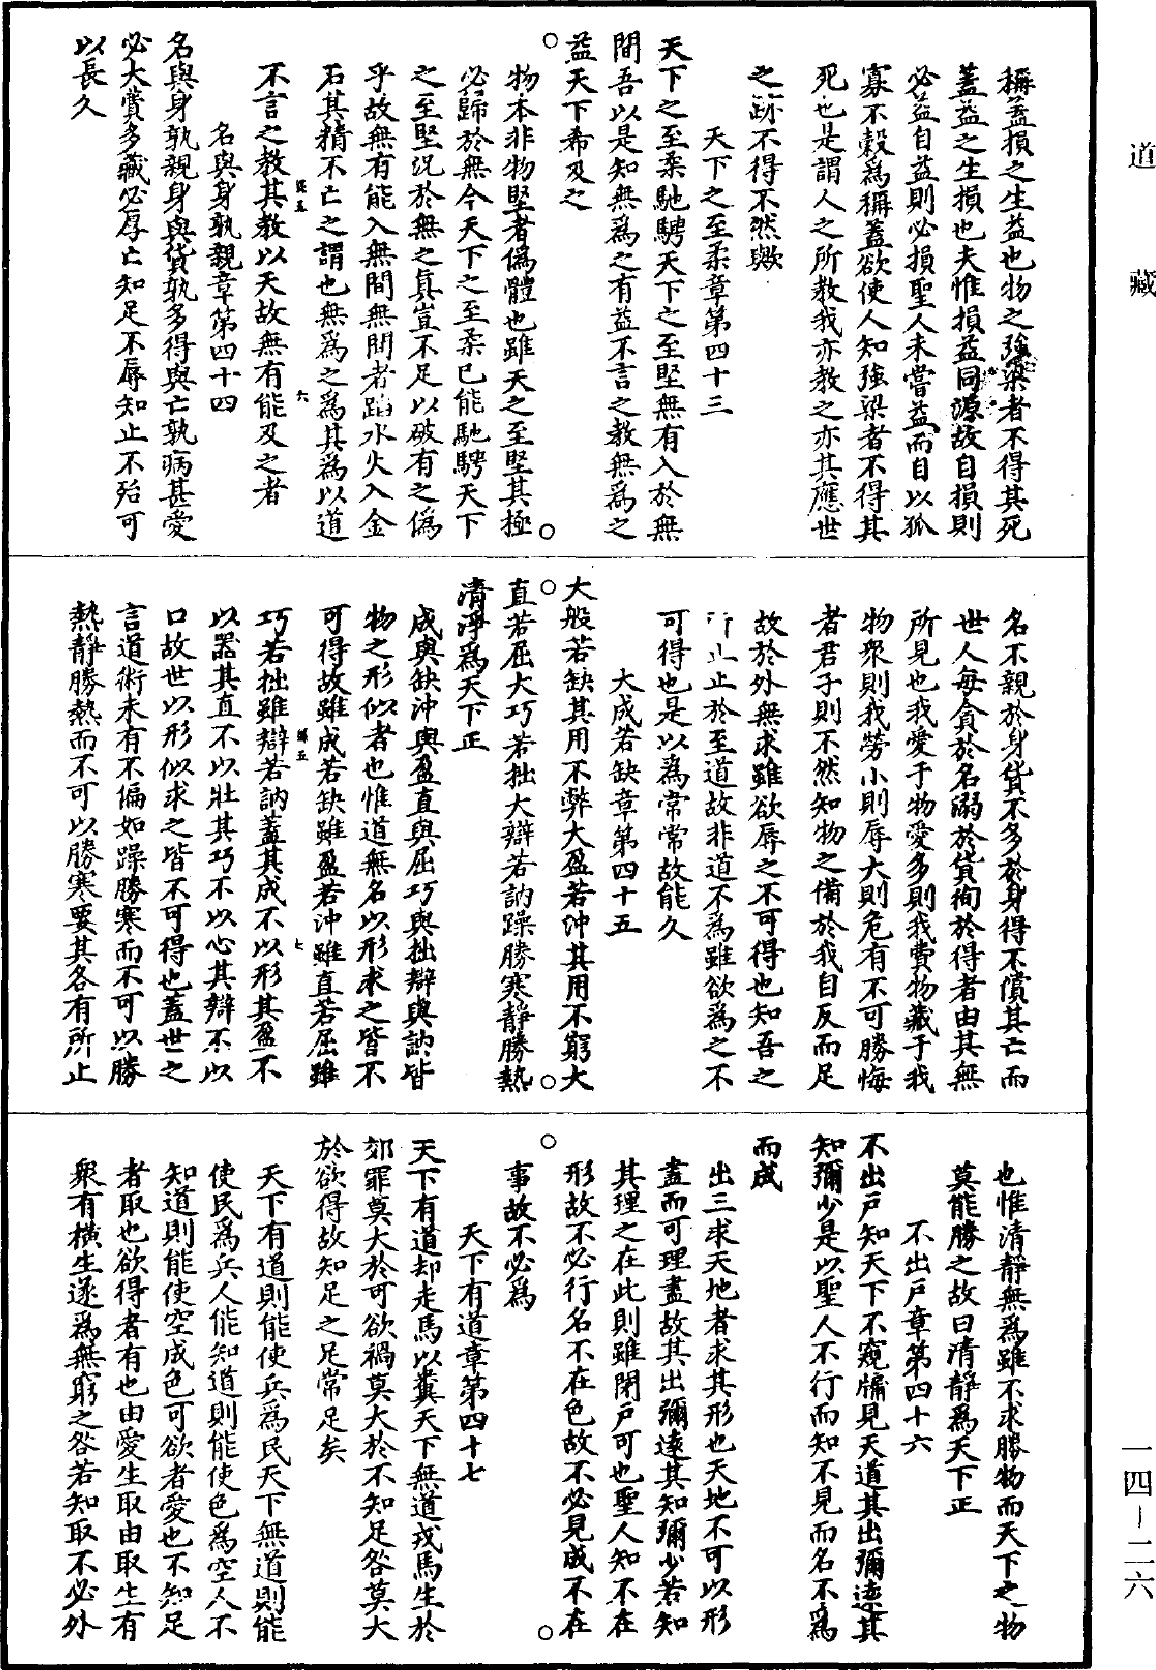 道藏
稱蓋損之生益也物之強梁者不得其死
蓋益之生損也夫惟損益同源故自損則
必益自益則必損聖人未嘗益而自以孤
寡不穀為稱蓋欲使人知強梁者不得其
死也是謂人之所教我亦教之亦其應世
之跡不得不然歟
天下之至柔章第四十三
天下之至柔馳騁天下之至堅無有入於無
間吾以是知無為之有益不言之教無為之
益天下希及之
物本非物堅者偽體也雖天之至堅其極
必歸於無今天下之至柔已能馳騁天下
之至堅況於無之真豈不足以破有之偽
乎故無有能入無間無間者蹈水火入金
石其精不亡之謂也無為之為其為以道
不言之教其教以天故無有能及之者
名與身孰親章第四十四
名與身孰親身與貨孰多得與亡孰病甚愛
必大費多藏必厚亡知足不辱知止不殆可
以長久
名不親於身貨不多於身得不償其亡而
世人每貪於名溺於貨徇於得者由其無
所見也我愛于物愛多則我費物藏于我
物衆則我勞小則辱大則危有不可勝悔
者君子則不然知物之備於我自反而足
故於外無求雖欲辱之不可得也知吾之
止於至道故非道不為雖欲為之不
可得也是以為常常故能久
大成若缺章第四十五
大般若缺其用不弊大盈若沖其用不窮大
直若屈大巧若拙大辯若訥躁勝寒靜勝熱
清淨為天下正
成與缺沖與盈直與屈巧與拙辯與訥皆
物之形似者也惟道無名以形求之皆不
可得故雖成若缺雖盈若沖雖直若屈雖
巧若拙雖辯若訥蓋其成不以形其盈不
以器其直不以壯其巧不以心其辯不以
口故世以形似求之皆不可得也蓋世之
言道術未有不偏如躁勝寒而不可以勝
熱靜勝熱而不可以勝寒要其各有所止
也惟清靜無為雖不求勝物而天下之物
莫能勝之故曰清靜為天下正
不出戶章第四十六
不出戶知天下不窺牖見天道其出彌遠其
知彌少是以聖人不行而知不見而名不為
而成
出三求天地者求其形也天地不可以形
盡而可理盡故其出彌遠其知彌少若知
其理之在此則雖閉戶可也聖人知不在
形故不必行名不在色故不必見成不在
事故不必為
天下有道章第四十七
天下有道却走馬以糞天下無道戎馬生於
郊罪莫大於可欲禍莫大於不知足咎莫大
於欲得故知足之足常足矣
天下有道則能使兵為民天下無道則能
使民為兵人能知道則能使色為空人不
知道則能使空成色可欲者愛也不知足
者取也欲得者有也由愛生取由取生有
衆有橫生遂為無窮之咎若知取不必外
一四－二六